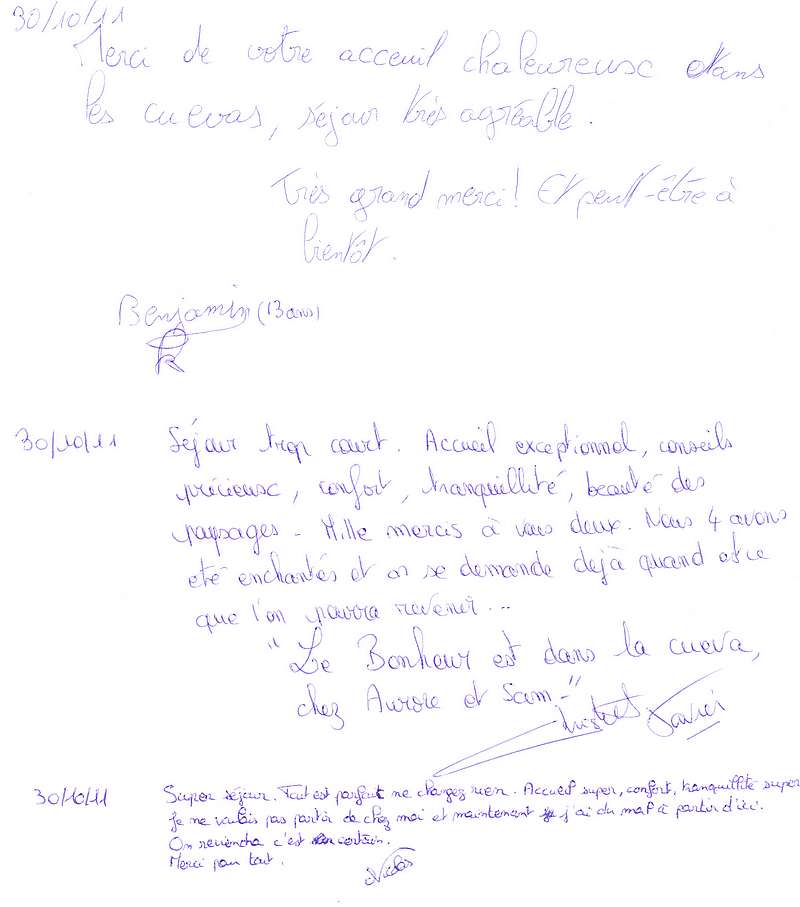 30/10/11
Merci de votre acceuil chaleureuse dans
les cuevas, séjour très agréable.
Très grand merci! Et peut-être à
bientôt.
Benjamin (13 ans)
30/10/11 Séjour trop court. Accueil exceptionnel, conseils
précieux, confort, tranquillité, beauté des
paysages - Mille mercis à vous deux. Nous 4 avons
été enchantés et on se demande déjà quand est ce
que l'on pourra revenir...
"Le Bonheur est dans la cueva,
chez Aurore et Sam-"
Xavier
30/10/11 Super séjour. Tout est parfait ne changez rien. Accueil super, confort, tranquillité super
Je ne voulais pas partir de chez moi et maintenant j'ai du mal à partir d'ici.
On reviendra c'est certain.
Merci pour tout.
Nicolas